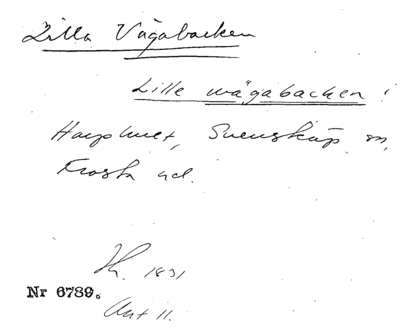 Lilla Vägabacken
Lille wägabacken!
Harphult, Svensköp sn,
Frosta hd.
1831
Nr 6789.
Akt 11.